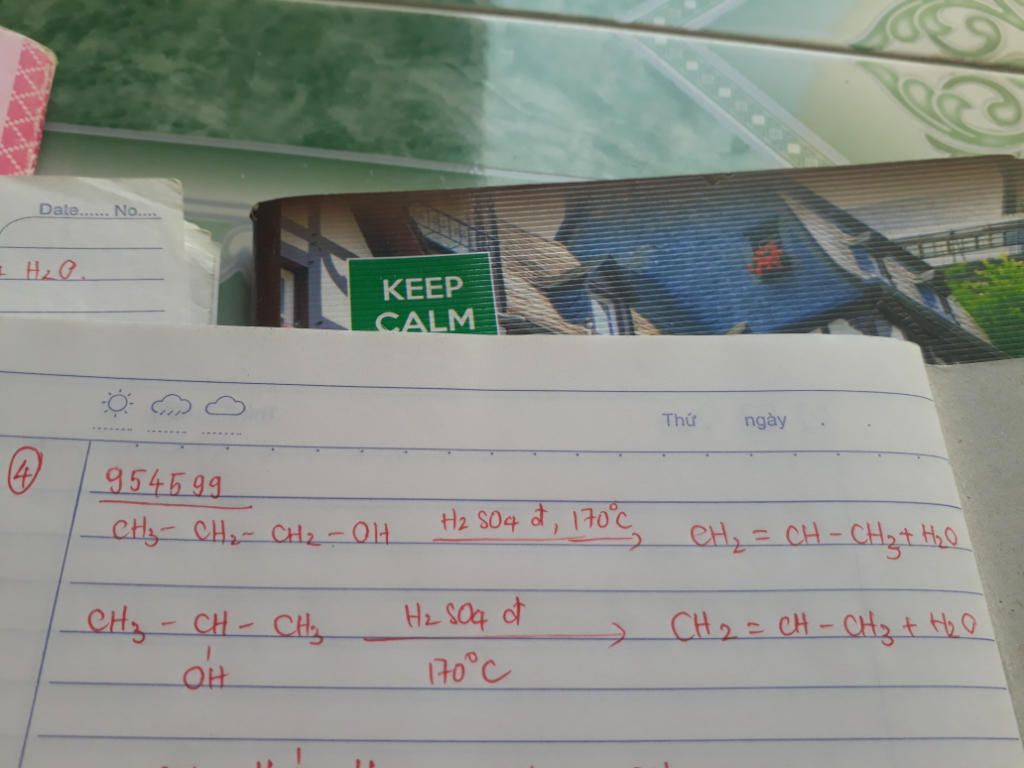 Date...... No....
H₂O.
KEEP
CALM
Thứ ngày
④
954599
CH₃ - CH₂ - CH₂ - OH H₂SO₄ đ, 170°C → CH₂ = CH - CH₃ + H₂O
CH₃ - CH - CH₃ H₂SO₄ đ → CH₂ = CH - CH₃ + H₂O
OH 170°C